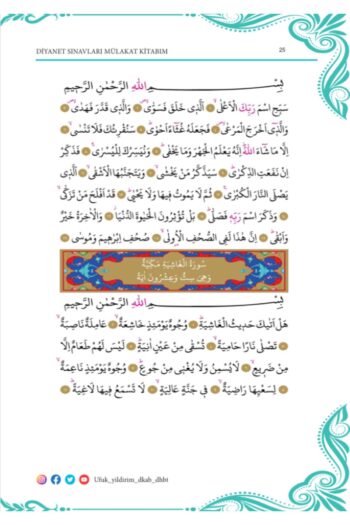 DİYANET SINAVLARI MÜLAKAT KİTABIM 25
بِسْمِ اللهِ الرَّحْمٰنِ الرَّحِيمِ
سَبِّحِ اسْمَ رَبِّكَ الْاَعْلٰىۙ اَلَّذِى خَلَقَ فَسَوّٰىۙ وَالَّذِى قَدَّرَ فَهَدٰىۙ
وَالَّذِٓى اَخْرَجَ الْمَرْعٰىۙ فَجَعَلَهُ غُثَٓاءً اَحْوٰىۜ سَنُقْرِئُكَ فَلَا تَنْسٰىۙ
اِلَّا مَا شَٓاءَ اللهُۜ اِنَّهُ يَعْلَمُ الْجَهْرَ وَمَا يَخْفٰىۜ وَنُيَسِّرُكَ لِلْيُسْرٰىۚ فَذَكِّرْ
اِنْ نَفَعَتِ الذِّكْرٰىۜ سَيَذَّكَّرُ مَنْ يَخْشٰىۙ وَيَتَجَنَّبُهَا الْاَشْقٰىۙ اَلَّذِى
يَصْلَى النَّارَ الْكُبْرٰىۚ ثُمَّ لَا يَمُوتُ فِيهَا وَلَا يَحْيٰىۜ قَدْ اَفْلَحَ مَنْ تَزَكّٰىۙ
وَذَكَرَ اسْمَ رَبِّهِ فَصَلّٰىۜ بَلْ تُؤْثِرُونَ الْحَيٰوةَ الدُّنْيَاۘ وَالْاٰخِرَةُ خَيْرٌ
وَاَبْقٰىۜ اِنَّ هٰذَا لَفِى الصُّحُفِ الْاُولٰىۙ صُحُفِ اِبْرٰهِيمَ وَمُوسٰى
سُورَةُ الْغَاشِيَةِ مَكِّيَّةٌ
وَهِىَ سِتٌّ وَعِشْرُونَ اٰيَةً
بِسْمِ اللهِ الرَّحْمٰنِ الرَّحِيمِ
هَلْ اَتٰيكَ حَدِيثُ الْغَاشِيَةِۜ وُجُوهٌ يَوْمَئِذٍ خَاشِعَةٌۙ عَامِلَةٌ نَاصِبَةٌۙ
تَصْلٰى نَارًا حَامِيَةًۙ تُسْقٰى مِنْ عَيْنٍ اٰنِيَةٍۜ لَيْسَ لَهُمْ طَعَامٌ اِلَّا
مِنْ ضَرِيعٍۙ لَا يُسْمِنُ وَلَا يُغْنِى مِنْ جُوعٍۜ وُجُوهٌ يَوْمَئِذٍ نَاعِمَةٌۙ
لِسَعْيِهَا رَاضِيَةٌۙ فِى جَنَّةٍ عَالِيَةٍۙ لَا تَسْمَعُ فِيهَا لَاغِيَةًۜ
Ufuk_yildirim_dkab_dhbt